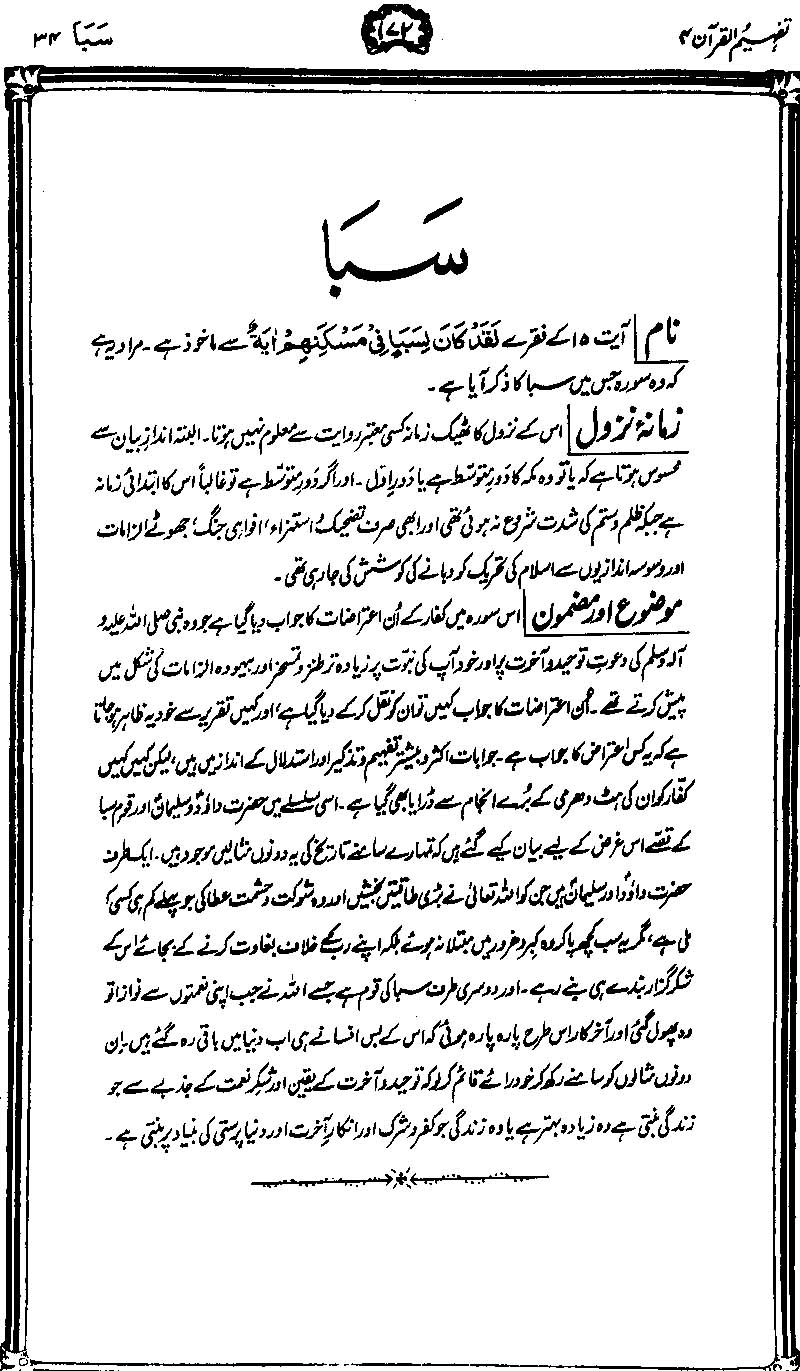 تفہیم القرآن ۴
۱۷۲
سَبَا ۳۴
سَبَا
نام آیت ۱۵ کے فقرے لَقَدْ كَانَ لِسَبَاٍ فِیْ مَسْكَنِهِمْ اٰیَةٌ سے ماخوذ ہے۔ مراد یہ ہے
کہ وہ سورہ جس میں سبا کا ذکر آیا ہے۔
زمانۂ نزول اس کے نزول کا ٹھیک زمانہ کسی معتبر روایت سے معلوم نہیں ہوتا۔ البتہ اندازِ بیان سے
محسوس ہوتا ہے کہ یا تو وہ مکہ کا دَورِ متوسّط ہے یا دَورِ اوّل۔ اور اگر دَورِ متوسّط ہے تو غالباً اس کا ابتدائی زمانہ
ہے جبکہ ظلم و ستم کی شدت شروع نہ ہوئی تھی اور ابھی صرف تضحیک، استہزاء، افواہی جنگ، جھوٹے الزامات
اور وسوسہ اندازیوں سے اسلام کی تحریک کو دبانے کی کوشش کی جا رہی تھی۔
موضوع اور مضمون اس سورہ میں کفار کے اُن اعتراضات کا جواب دیا گیا ہے جو وہ نبی صلی اللہ علیہ و
آلہ وسلم کی دعوتِ توحید و آخرت پر اور خود آپ کی نبوّت پر زیادہ تر طنز و تمسخر اور بیہودہ الزامات کی شکل میں
پیش کرتے تھے۔ اُن اعتراضات کا جواب کہیں تو ان کو نقل کر کے دیا گیا ہے، اور کہیں تقریر سے خود یہ ظاہر ہو جاتا
ہے کہ یہ کس اعتراض کا جواب ہے۔ جوابات اکثر و بیشتر تفہیم و تذکیر اور استدلال کے انداز میں ہیں، لیکن کہیں کہیں
کفار کو ان کی ہٹ دھرمی کے بُرے انجام سے ڈرایا بھی گیا ہے۔ اسی سلسلے میں حضرت داؤدؑ و سلیمانؑ اور قوم سبا
کے قصّے اس غرض کے لیے بیان کیے گئے ہیں کہ تمہارے سامنے تاریخ کی یہ دونوں مثالیں موجود ہیں۔ ایک طرف
حضرت داؤدؑ اور سلیمانؑ ہیں جن کو اللہ تعالیٰ نے بڑی طاقتیں بخشیں اور وہ شوکت و حشمت عطا کی جو پہلے کم ہی کسی کو
ملی ہے، مگر یہ سب کچھ پا کر وہ کبر و غرور میں مبتلا نہ ہوئے بلکہ اپنے رب کے خلاف بغاوت کرنے کے بجائے اس کے
شکر گزار بندے ہی بنے رہے۔ اور دوسری طرف سبا کی قوم ہے جسے اللہ نے جب اپنی نعمتوں سے نوازا تو
وہ پھول گئی اور آخر کار اس طرح پارہ پارہ ہوئی کہ اس کے بس افسانے ہی اب دنیا میں باقی رہ گئے ہیں۔ اِن
دونوں مثالوں کو سامنے رکھ کر خود رائے قائم کر لو کہ توحید و آخرت کے یقین اور شکرِ نعمت کے جذبے سے جو
زندگی بنتی ہے وہ زیادہ بہتر ہے یا وہ زندگی جو کفر و شرک اور انکارِ آخرت اور دنیا پرستی کی بنیاد پر بنتی ہے۔